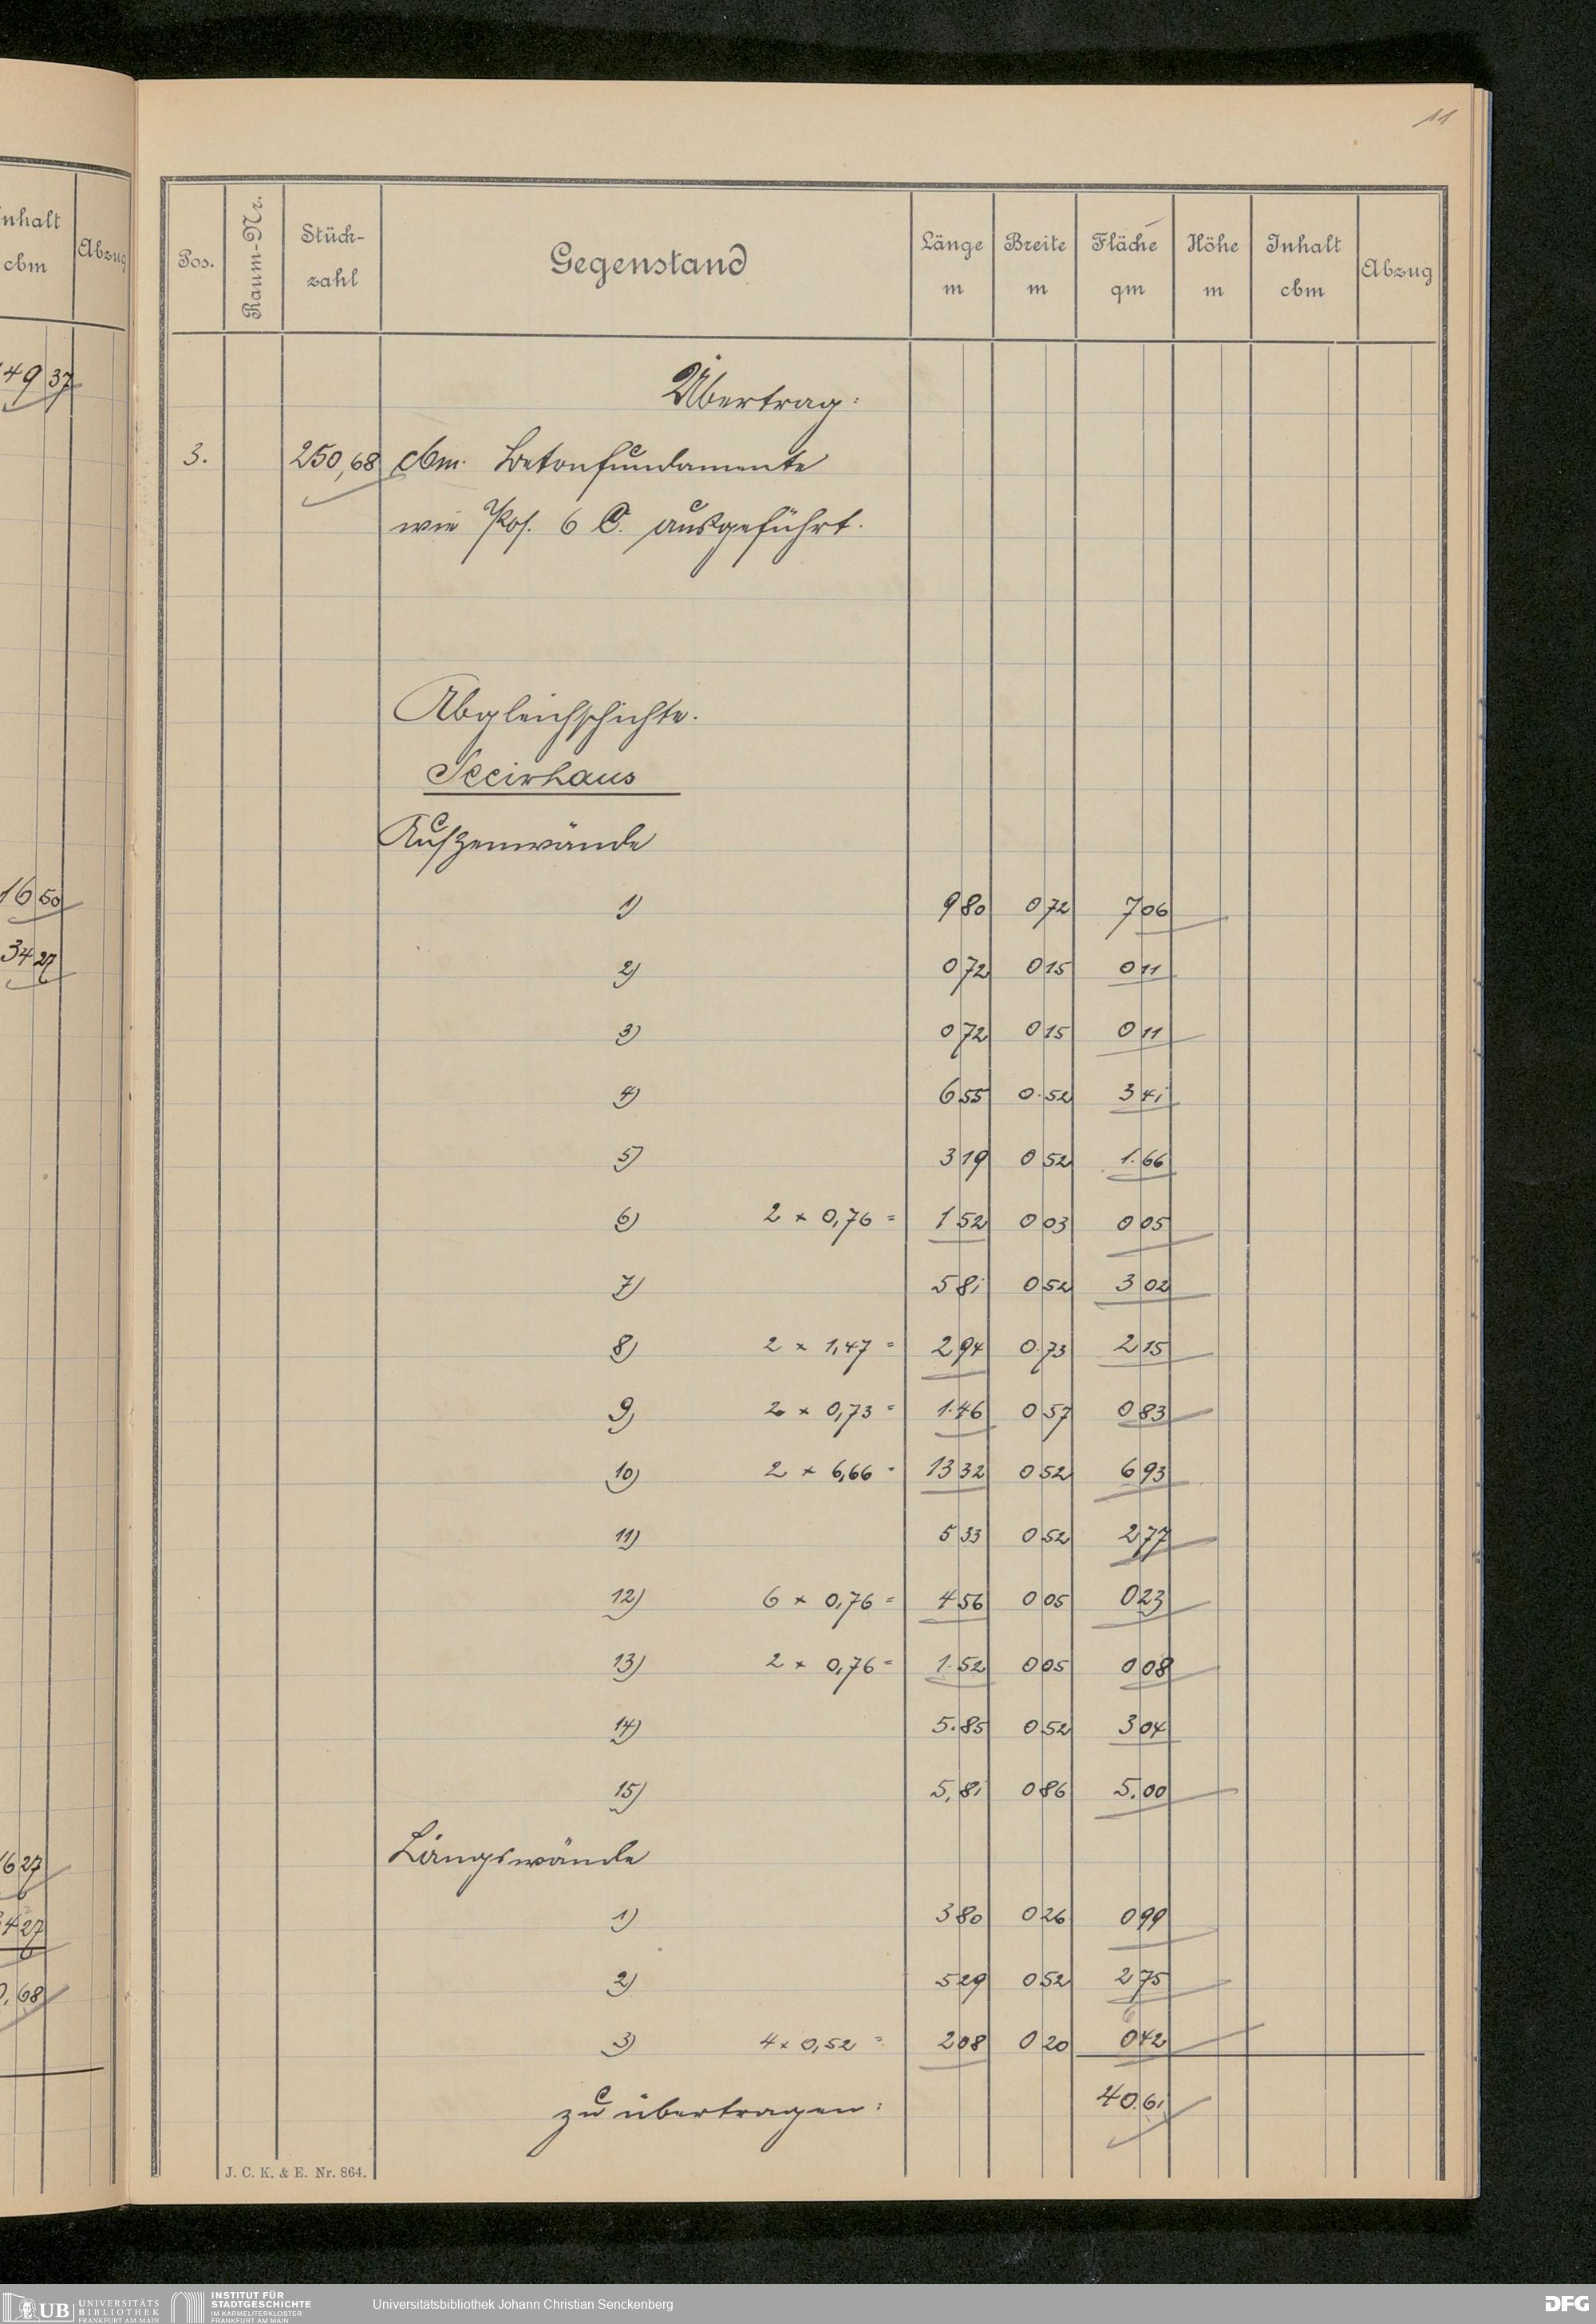 11
nhalt
cbm
Abzug
49 37
16 50
34 27
627
427
0,68
Pos. Raum-Nr. Stück-zahl Gegenstand Länge m Breite m Fläche qm Höhe m Inhalt cbm Abzug
Übertrag:
3. 250,68 cbm. Betonfundamente
wie Pos. 6 C. ausgeführt.
Abgleichschichte.
Secirhaus
Außenwände
1) 9 80 0 72 7 06
2) 0 72 0 15 0 11
3) 0 72 0 15 0 11
4) 6 55 0.52 3 41
5) 3 19 0 52 1.66
6) 2 × 0,76 = 1 52 0 03 0 05
7) 5 81 0 52 3 02
8) 2 × 1,47 = 2 94 0.73 2 15
9) 2 × 0,73 = 1.46 0 57 0 83
10) 2 × 6,66 = 13 32 0 52 6 93
11) 5 33 0 52 2 77
12) 6 × 0,76 = 4 56 0 05 0 23
13) 2 × 0,76 = 1.52 0 05 0 08
14) 5.85 0 52 3 04
15) 5,81 0 86 5.00
Längswände
1) 3 80 0 26 0 99
2) 5 29 0 52 2 75
3) 4 × 0,52 = 2 08 0 20 0 42
zu übertragen: 40.61
J. C. K. & E. Nr. 864.
UB UNIVERSITÄTS
BIBLIOTHEK
FRANKFURT AM MAIN
INSTITUT FÜR
STADTGESCHICHTE
IM KARMELITERKLOSTER
FRANKFURT AM MAIN
Universitätsbibliothek Johann Christian Senckenberg
DFG